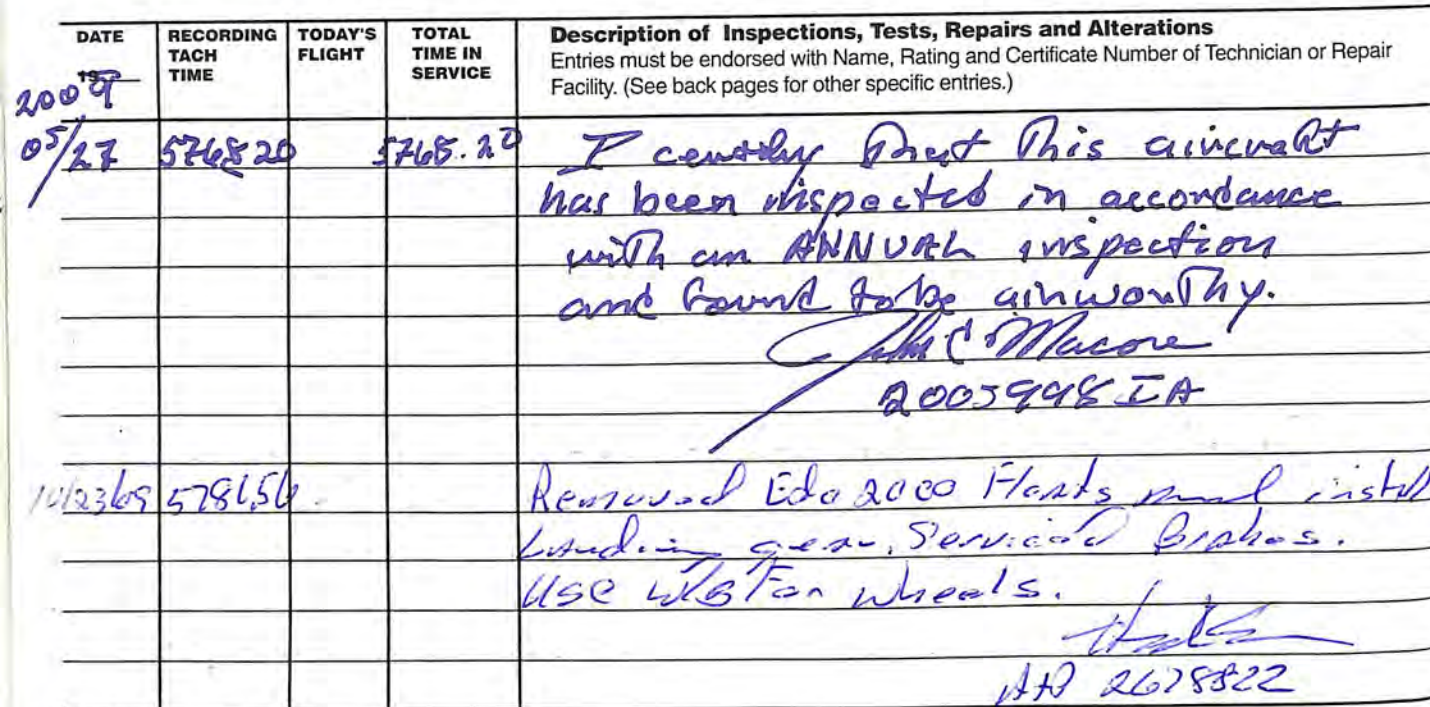 DATE RECORDING TACH TIME TODAY'S FLIGHT TOTAL TIME IN SERVICE Description of Inspections, Tests, Repairs and Alterations
Entries must be endorsed with Name, Rating and Certificate Number of Technician or Repair
Facility. (See back pages for other specific entries.)
19
2009
05/27 5768.20 5768.20 I certify that this aircraft
has been inspected in accordance
with an ANNUAL inspection
and found to be airworthy.
John C Macone
2005998 IA
10/23/09 5786.56 Removed Edo 2000 Floats and install
Landing gear. Serviced Brakes.
Use W&B for wheels.
A&P 2678822